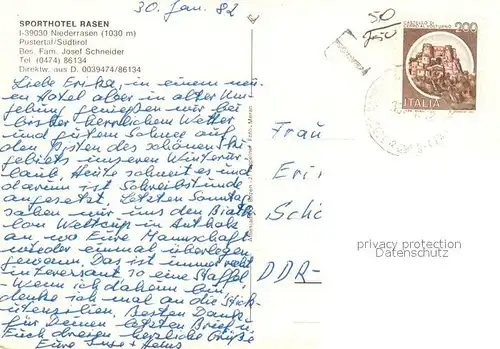 30. Jan. 82
SPORTHOTEL RASEN
I-39030 Niederrasen (1030 m)
Pustertal/Südtirol
Bes. Fam. Josef Schneider
Tel. (0474) 86134
Direktw. aus D. 0039474/86134
Liebe Erika, in einem neu-
en Hotel aber in alter Um-
gebung, genießen wir bei
bis der herrlichem Wetter
und gutem Schnee auf
den Pisten des schönen Ski
gebiets unseren Winterur
laub. Heute schneit es und
darum ist Schreibstunde
angesetzt. Letzten Sonntag
sahen wir uns den Biath-
lon Weltcup in Antholz
an, wo Eure Mannschaft
wieder einmal überlegen
gewann. Das ist immer recht
interessant so eine Staffel
Wenn ich daheim bin,
denke ich mal an die Stick-
utensilien. Besten Dank
für Deinen letzten Brief u.
Euch dreien herzliche Grüße
Eure Inge + Heinz
50
T
CASTELLO DI
200
ITALIA
Frau
Eri
Schö
DDR-
privacy protection
Datenschutz